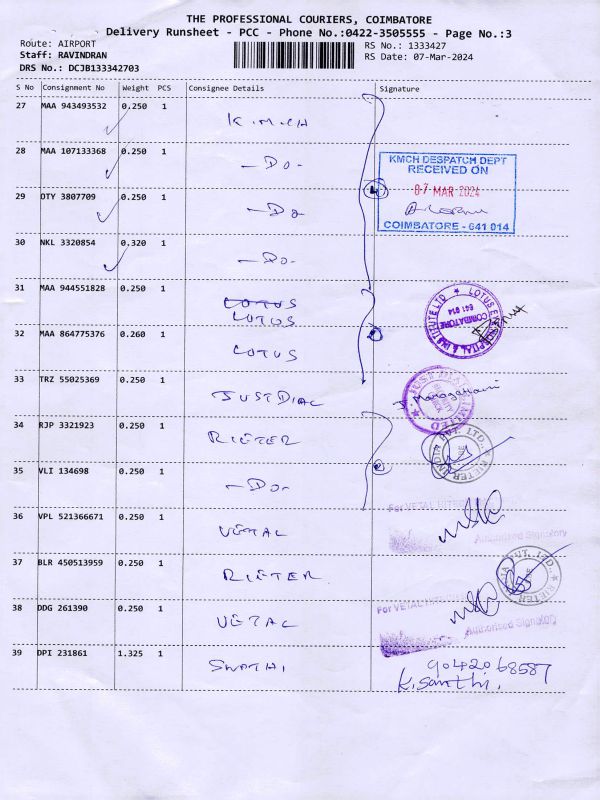 THE PROFESSIONAL COURIERS, COIMBATORE
Delivery Runsheet - PCC - Phone No.:0422-3505555 - Page No.:3
Route: AIRPORT
Staff: RAVINDRAN
DRS No.: DCJB133342703
RS No.: 1333427
RS Date: 07-Mar-2024
S No Consignment No Weight PCS Consignee Details Signature
27 MAA 943493532 0.250 1 K.M.C.H
28 MAA 107133368 0.250 1 -Do-
KMCH DESPATCH DEPT
RECEIVED ON
07 MAR 2024
COIMBATORE - 641 014
29 OTY 3807709 0.250 1 -Do
30 NKL 3320854 0.320 1 -Do-
31 MAA 944551828 0.250 1 LOTUS
LOTUS
LOTUS EYE HOSPITAL & INSTITUTE LTD
COIMBATORE
641 014
32 MAA 864775376 0.260 1 LOTUS
33 TRZ 55025369 0.250 1 JUSTDIAL
JUST DIAL LIMITED
34 RJP 3321923 0.250 1 RIETER
RIETER INDIA PVT. LTD.
35 VLI 134698 0.250 1 -Do-
36 VPL 521366671 0.250 1 VETAL
For VETAL
Authorised Signatory
37 BLR 450513959 0.250 1 RIETER
RIETER INDIA PVT. LTD.
38 DDG 261390 0.250 1 VETAL
For VETAL
Authorised Signatory
39 DPI 231861 1.325 1 SWATHI
9042068587
K. Santhi.